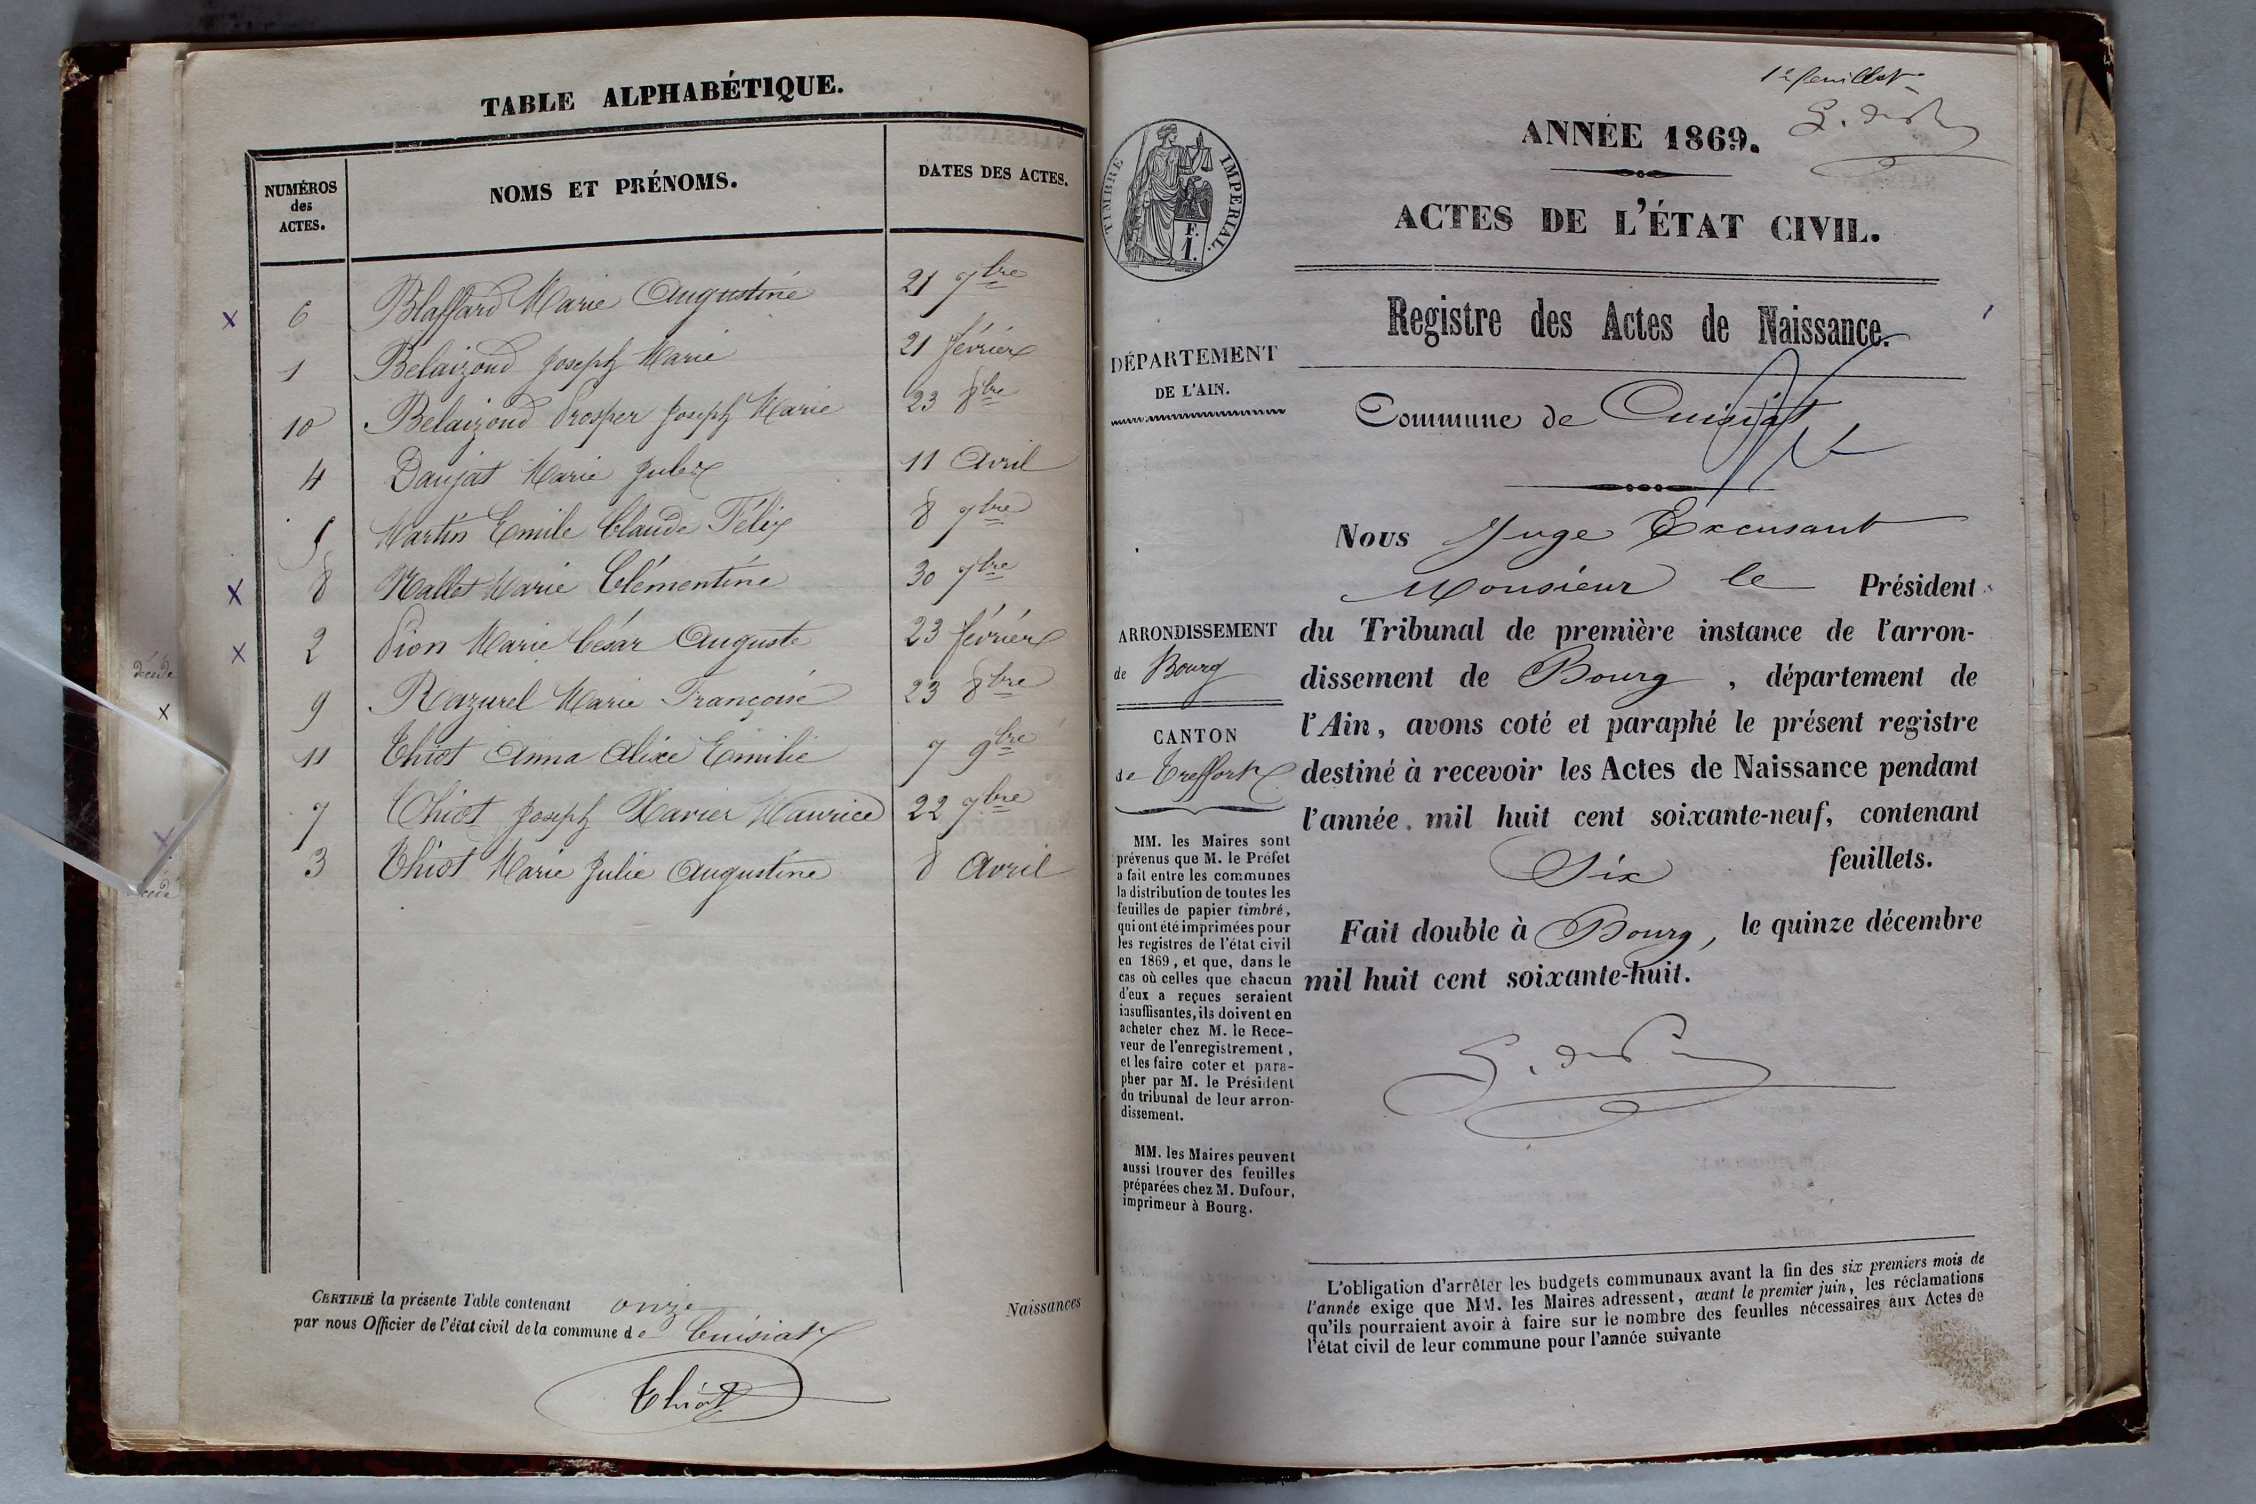 TABLE ALPHABÉTIQUE.
NUMÉROS
des
ACTES.
NOMS ET PRÉNOMS.
DATES DES ACTES.
6 Blaffard Marie Augustine 21 7bre
1 Belaizond Joseph Marie 21 février
10 Belaizond Prosper Joseph Marie 23 8bre
4 Daujat Marie Jules 11 Avril
5 Martin Emile Claude Félix 8 7bre
8 Mallet Marie Clémentine 30 7bre
2 Pion Marie César Auguste 23 février
9 Razurel Marie Françoise 23 8bre
11 Thiot Anna Alixe Emilie 7 9bre
7 Thiot Joseph Xavier Maurice 22 7bre
3 Thiot Marie Julie Augustine 8 Avril
CERTIFIÉ la présente Table contenant onze Naissances
par nous Officier de l'état civil de la commune de Cuisiat
Thiot
décédé
1er feuillet
ANNÉE 1869.
TIMBRE IMPÉRIAL.
F.
1.
ACTES DE L'ÉTAT CIVIL.
Registre des Actes de Naissance.
DÉPARTEMENT
DE L'AIN.
Commune de Cuisiat
ARRONDISSEMENT
de Bourg
CANTON
de Treffort
MM. les Maires sont
prévenus que M. le Préfet
a fait entre les communes
la distribution de toutes les
feuilles de papier timbré,
qui ont été imprimées pour
les registres de l'état civil
en 1869, et que, dans le
cas où celles que chacun
d'eux a reçues seraient
insuffisantes, ils doivent en
acheter chez M. le Rece-
veur de l'enregistrement,
et les faire coter et para-
pher par M. le Président
du tribunal de leur arron-
dissement.
MM. les Maires peuvent
aussi trouver des feuilles
préparées chez M. Dufour,
imprimeur à Bourg.
Nous Juge Excusant
Monsieur le Président
du Tribunal de première instance de l'arron-
dissement de Bourg, département de
l'Ain, avons coté et paraphé le présent registre
destiné à recevoir les Actes de Naissance pendant
l'année mil huit cent soixante-neuf, contenant
Six feuillets.
Fait double à Bourg, le quinze décembre
mil huit cent soixante-huit.
L'obligation d'arrêter les budgets communaux avant la fin des six premiers mois de
l'année exige que MM. les Maires adressent, avant le premier juin, les réclamations
qu'ils pourraient avoir à faire sur le nombre des feuilles nécessaires aux Actes de
l'état civil de leur commune pour l'année suivante